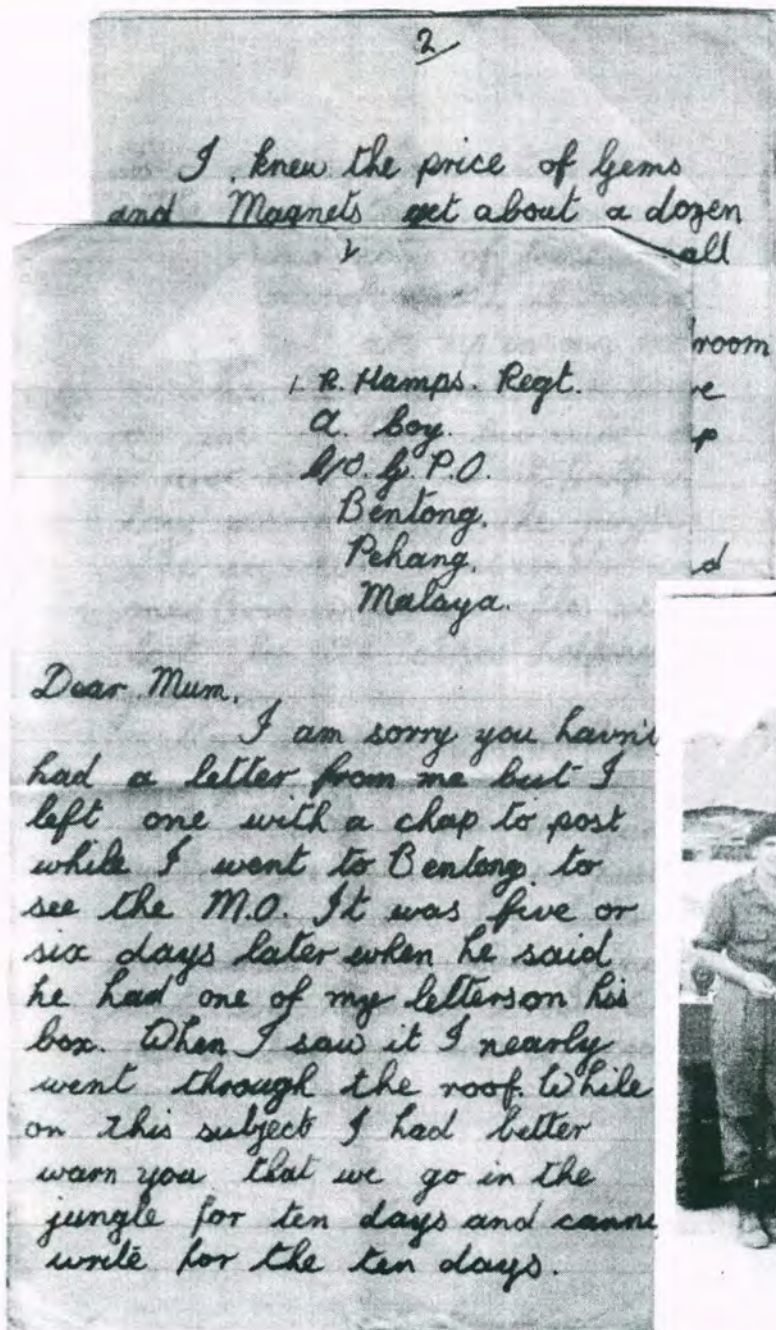 2
I knew the price of Gems
and Magnets get about a dozen
all
room
ve
p
d
1
1 R. Hamps. Regt.
A. Coy.
C/O. G.P.O.
Bentong.
Pehang.
Malaya.
Dear Mum,
I am sorry you havn't
had a letter from me but I
left one with a chap to post
while I went to Bentong to
see the M.O. It was five or
six days later when he said
he had one of my letters on his
box. When I saw it I nearly
went through the roof. While
on this subject I had better
warn you that we go in the
jungle for ten days and canno
write for the ten days.